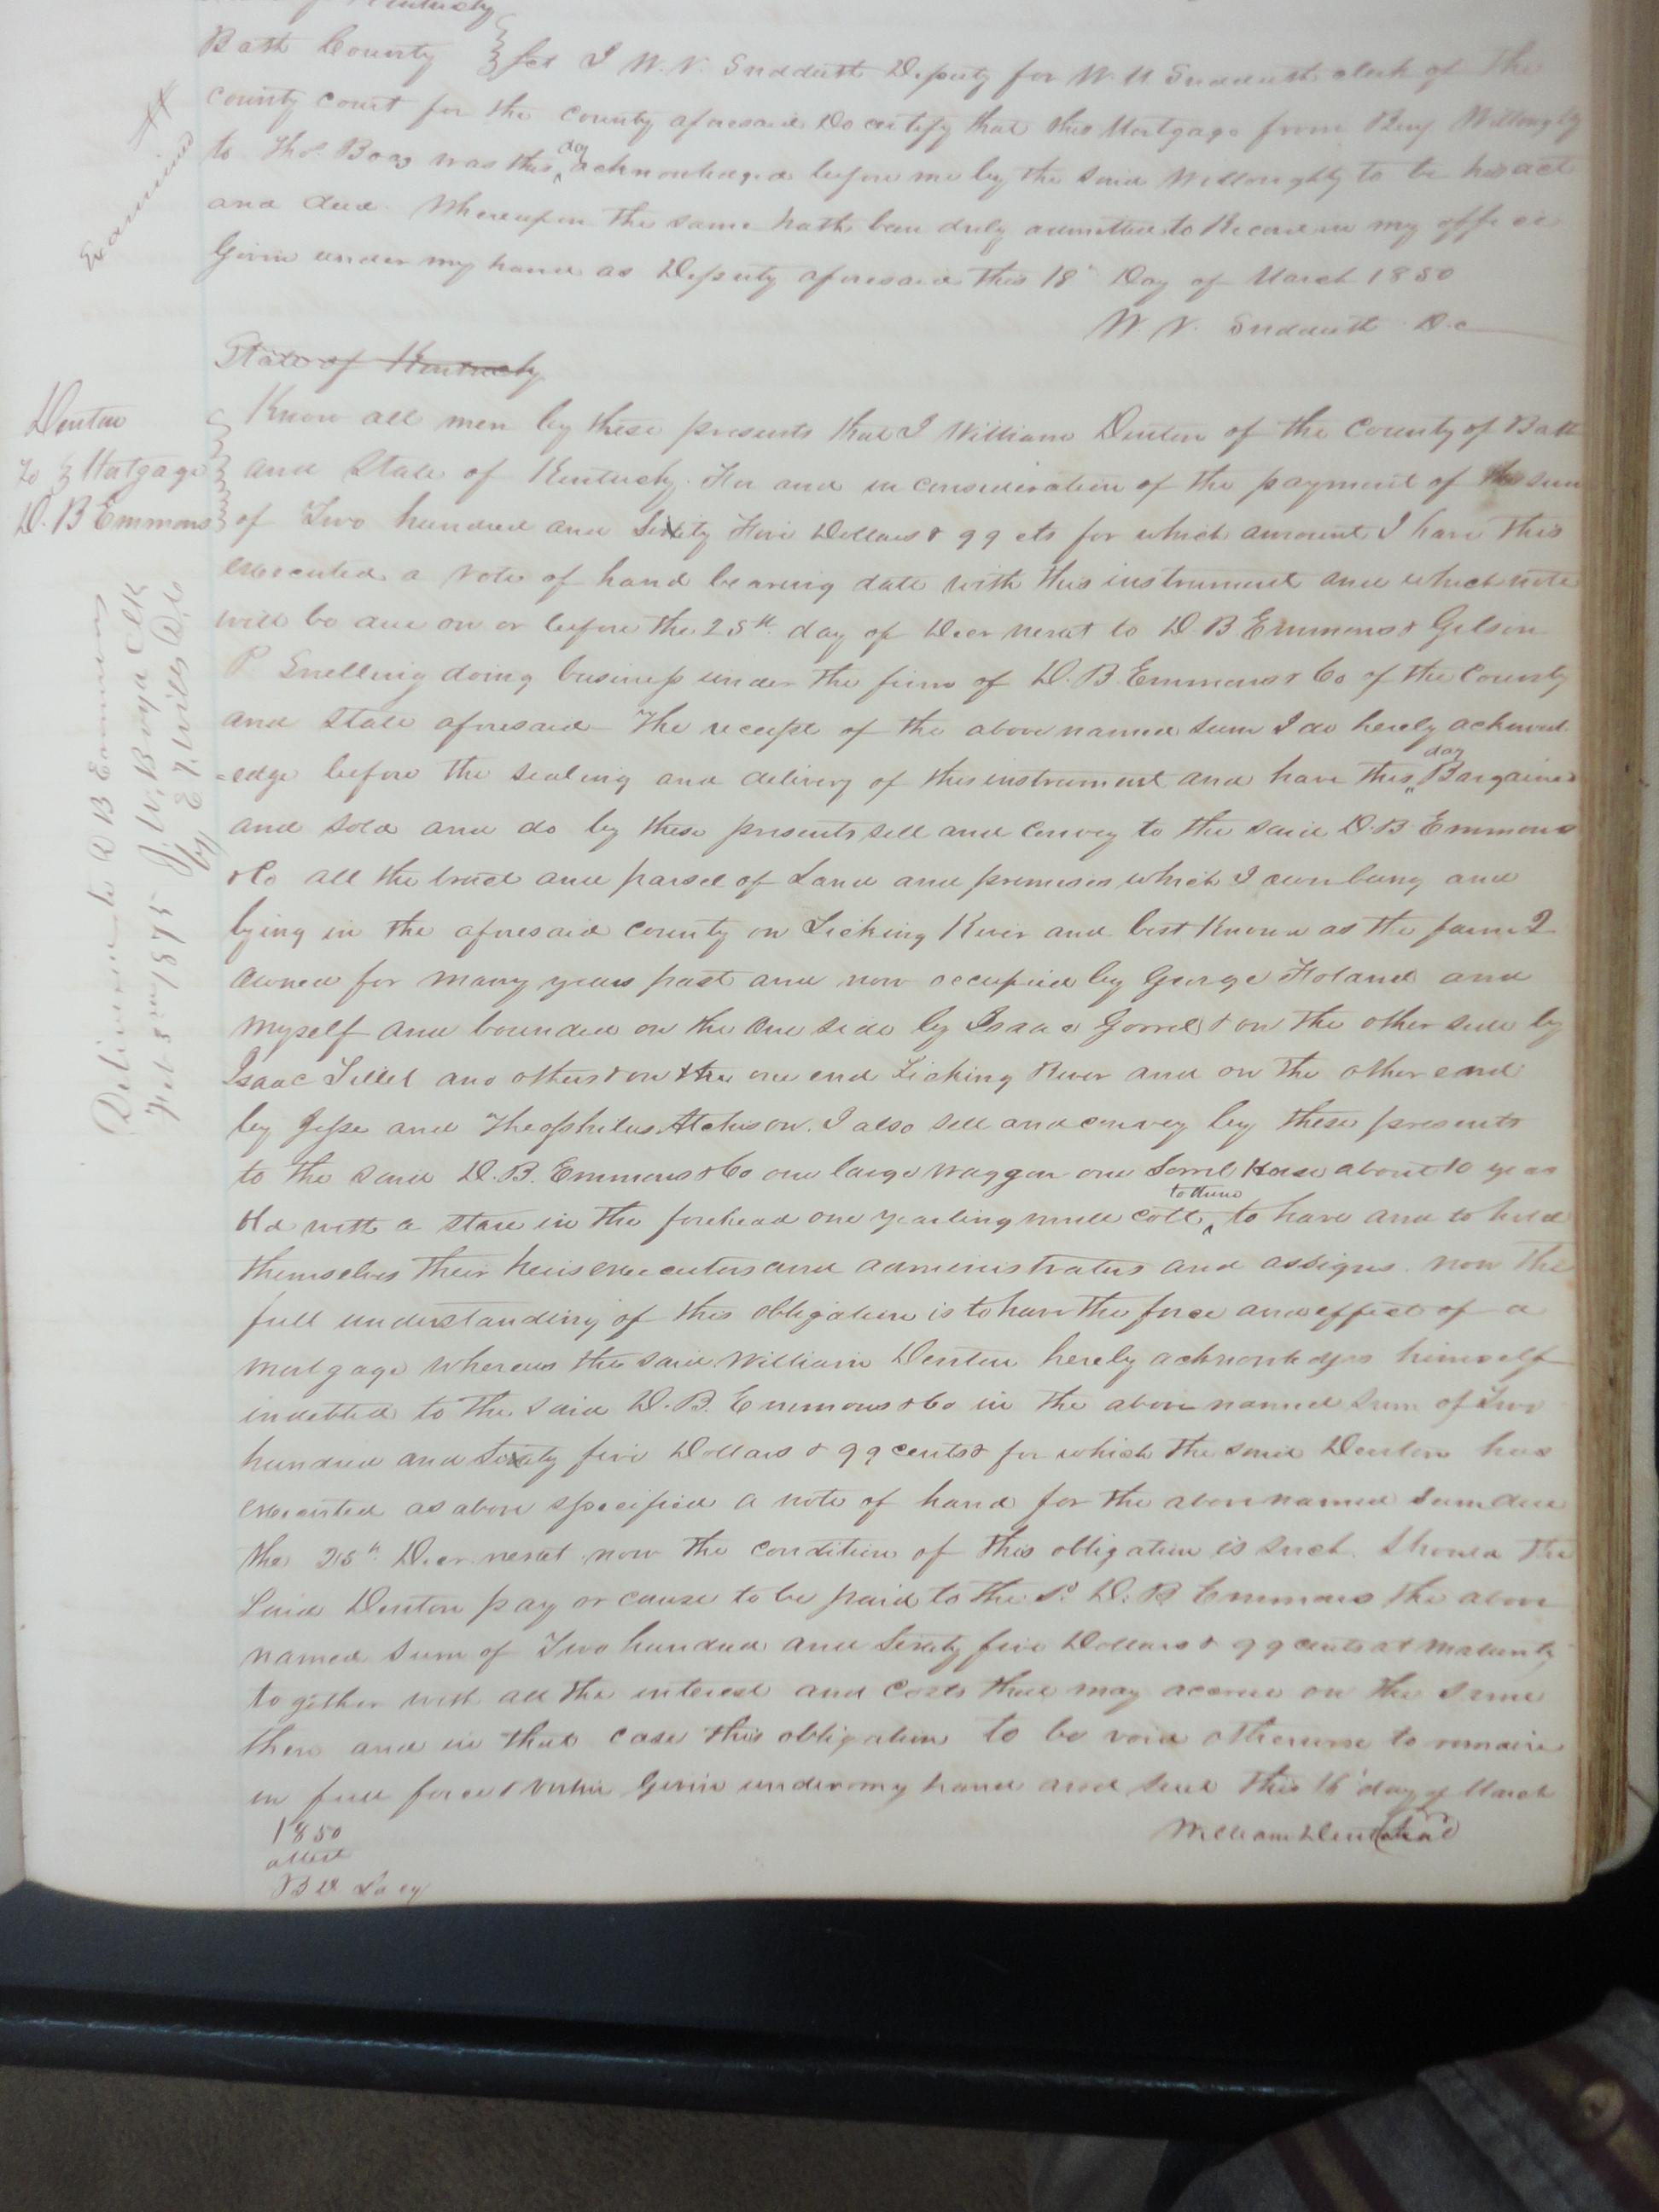 Kentucky
Bath County } Sct I W. N. Sudduth Deputy for W. U Sudduth clerk of the
county court for the county aforesaid Do certify that this Mortgage from Benj Willoughby
to Thos. Boaz was this day acknowledged before me by the said Willoughby to be his act
and deed. Whereupon the same hath been duly admitted to Record in my office
Given under my hand as Deputy aforesaid this 18" Day of March 1850
W. N. Suddath D.c
Examined
State of Kentucky
Denton
to } Mortgage
D. B Emmons
Know all men by these presents that I William Denton of the County of Bath
and State of Kentucky. For and in consideration of the payment of the sum
of Two hundred and Sixty Five Dollars & 99 cts for which amount I have this
executed a note of hand bearing date with this instrument and which note
will be due on or before the 25th day of Decr next to D. B Emmons & Gelson
P. Snelling doing business under the firm of D. B. Emmons & Co of the County
and State aforesaid The receipt of the above named sum I do hereby acknowl
=edge before the sealing and delivery of this instrument and have this day Bargained
and sold and do by these presents sell and convey to the said D. B Emmons
& Co all the tract and parsel of Land and premises which I own laing and
lying in the aforesaid county on Licking River and best Known as the farm I
owned for many years past and now occupied by George Holand and
myself and bounded on the one side by Isaac Gorrel & on the other side by
Isaac and others & on the one end Licking River and on the other end
by Jesse and Theophilus Atchison. I also sell and convey by these presents
to the said D. B. Emmons & Co one large waggon one Sorrel Horse about 10 years
old with a stare in the forehead one yearling mule colt, to them to have and to hold
themselves their heirs executors and administrators and assigns. now the
full understanding of this obligation is to have the force and effect of a
mortgage whereas the said William Denton hereby acknowledges himself
indebted to the said D. B. Emmons & Co in the above named sum of Two
hundred and Sixty five Dollars & 99 cents & for which the said Denton has
executed as above specified a note of hand for the above named sum due
the 25th Decr next now the condition of this obligation is such Should the
said Denton pay or cause to be paid to the Sd D. B Emmons the above
named sum of Two hundred and Sixty five Dollars & 99 cents at maturity
together with all the interest and costs that may accrue on the same
then and in that case this obligation to be void otherwise to remain
in full force & virtue Given under my hand and seal this 16' day of March
1850
William Denton (Seal)
attest
B D Lacy
Delivered to D B Emmons
Feb 3rd 1875 J. W. Boyd Clk
by E. F. Wiles D.C.